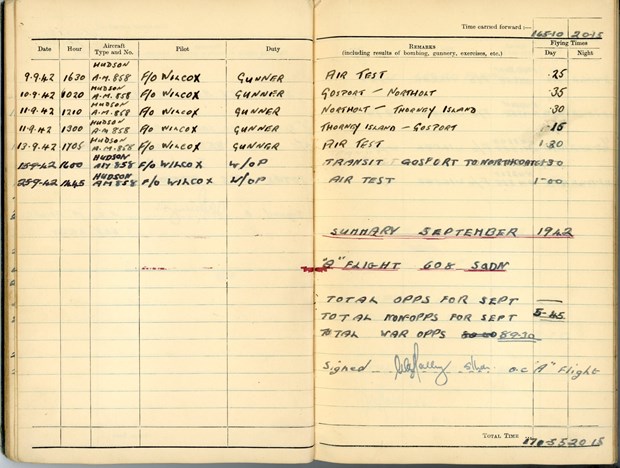 Date Hour Aircraft Type and No. Pilot Duty
HUDSON
9.9.42 1630 A.M. 858 F/O WILCOX GUNNER
HUDSON
10.9.42 1020 A.M. 858 F/O WILCOX GUNNER
HUDSON
11.9.42 1210 A.M. 858 F/O WILCOX GUNNER
HUDSON
11.9.42 1300 A.M. 858 F/O WILCOX GUNNER
HUDSON
13.9.42 1705 A.M. 858 F/O WILCOX GUNNER
HUDSON
15.9.42 1600 AM 858 F/O WILCOX W/OP
HUDSON
25.9.42 1445 AM 858 F/O WILCOX W/OP
Time carried forward :— 165-10 20-15
Remarks
(including results of bombing, gunnery, exercises, etc.)
Flying Times
Day Night
AIR TEST .25
GOSPORT — NORTHOLT .35
NORTHOLT — THORNEY ISLAND .30
THORNEY ISLAND — GOSPORT .15
AIR TEST 1.30
TRANSIT GOSPORT TO 1.30
AIR TEST 1-00
SUMMARY SEPTEMBER 1942
"A" FLIGHT 608 SQDN
TOTAL OPPS FOR SEPT —
TOTAL NON-OPPS FOR SEPT 5-45
TOTAL WAR OPPS 89-30
Signed o.c "A" Flight
TOTAL TIME 170-55 20 15